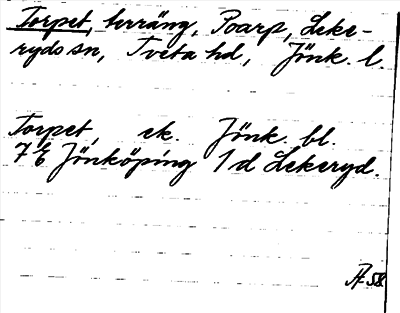 Torpet, terräng, Roarp, Leke-
ryds sn, Tveta hd, Jönk. l.
Torpet, ek. Jönk. bl.
7 E Jönköping 1 d Lekeryd.